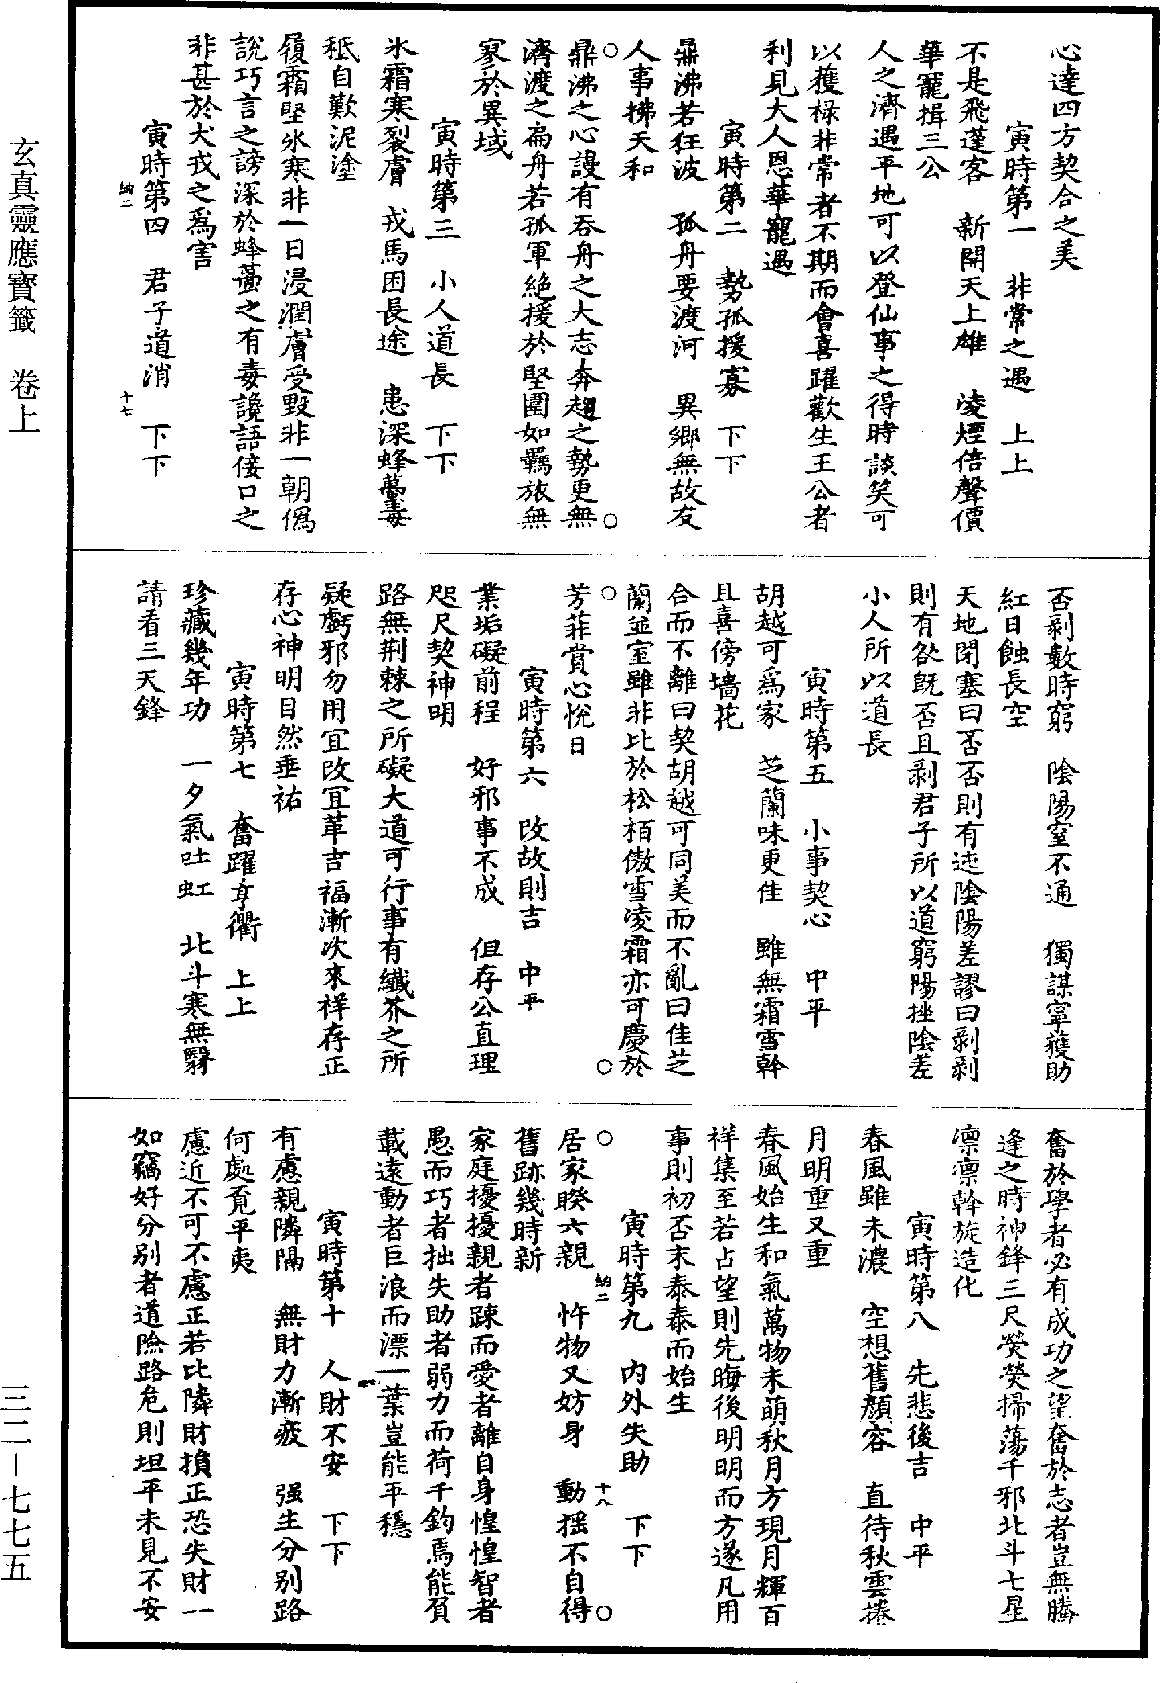 心達四方契合之美
寅時第一　非常之遇　上上
不是飛蓬客　新開天上雄　凌煙倍聲價
華寵揖三公
人之濟遇平地可以登仙事之得時談笑可
以獲祿非常者不期而會喜躍歡生王公者
利見大人恩華寵遇
寅時第二　勢孤援寡　下下
鼎沸若狂波　孤舟要渡河　異鄉無故友
人事拂天和
鼎沸之心謾有吞舟之大志奔趨之勢更無
濟渡之扁舟若孤軍絕援於堅圍如羈旅無
家於異域
寅時第三　小人道長　下下
氷霜寒裂膚　戎馬困長途　患深蜂蠆毒
秪自歎泥塗
履霜堅氷寒非一日浸潤膚受毀非一朝僞
說巧言之謗深於蜂蠆之有毒讒語侫口之
非甚於犬戎之爲害
寅時第四　君子道消　下下
納二　十七
否剥數時窮　陰陽窒不通　獨謀寧獲助
紅日蝕長空
天地閉塞曰否否則有迍陰陽差謬曰剥剥
則有咎旣否且剥君子所以道窮陽挫陰差
小人所以道長
寅時第五　小事契心　中平
胡越可爲家　芝蘭味更佳　雖無霜雪幹
且喜傍墻花
合而不離曰契胡越可同美而不亂曰佳芝
蘭並室雖非比於松栢傲雪凌霜亦可慶於
芳菲賞心悅日
寅時第六　改故則吉　中平
業垢礙前程　好邪事不成　但存公直理
咫尺契神明
路無荆棘之所礙大道可行事有纖芥之所
疑虧邪勿用宜改宜革吉福漸次來祥存正
存心神明自然垂祐
寅時第七　奮躍亨衢　上上
珍藏幾年功　一夕氣吐虹　北斗寒無翳
請看三天鋒
奮於學者必有成功之望奮於志者豈無騰
逢之時神鋒三尺熒熒掃蕩千邪北斗七星
凛凛斡旋造化
寅時第八　先悲後吉　中平
春風雖未濃　空想舊顏容　直待秋雲捲
月明重又重
春風始生和氣萬物未萌秋月方現月輝百
祥集至若占望則先晦後明明而方遂凡用
事則初否末泰泰而始生
寅時第九　內外失助　下下
居家睽六親　忤物又妨身　動摇不自得
納二　十八
舊跡幾時新
家庭擾擾親者踈而愛者離自身惶惶智者
愚而巧者拙失助者弱力而荷千鈞焉能負
載遠動者巨浪而漂一葉豈能平穩
寅時第十　人財不安　下下
有慮親隣隔　無財力漸疲　强生分别路
何處覓平夷
慮近不可不慮正若比隣財損正恐失財一
如竊好分别者道險路危則坦平未見不安
玄真靈應寶籤　卷上
三二—七七五